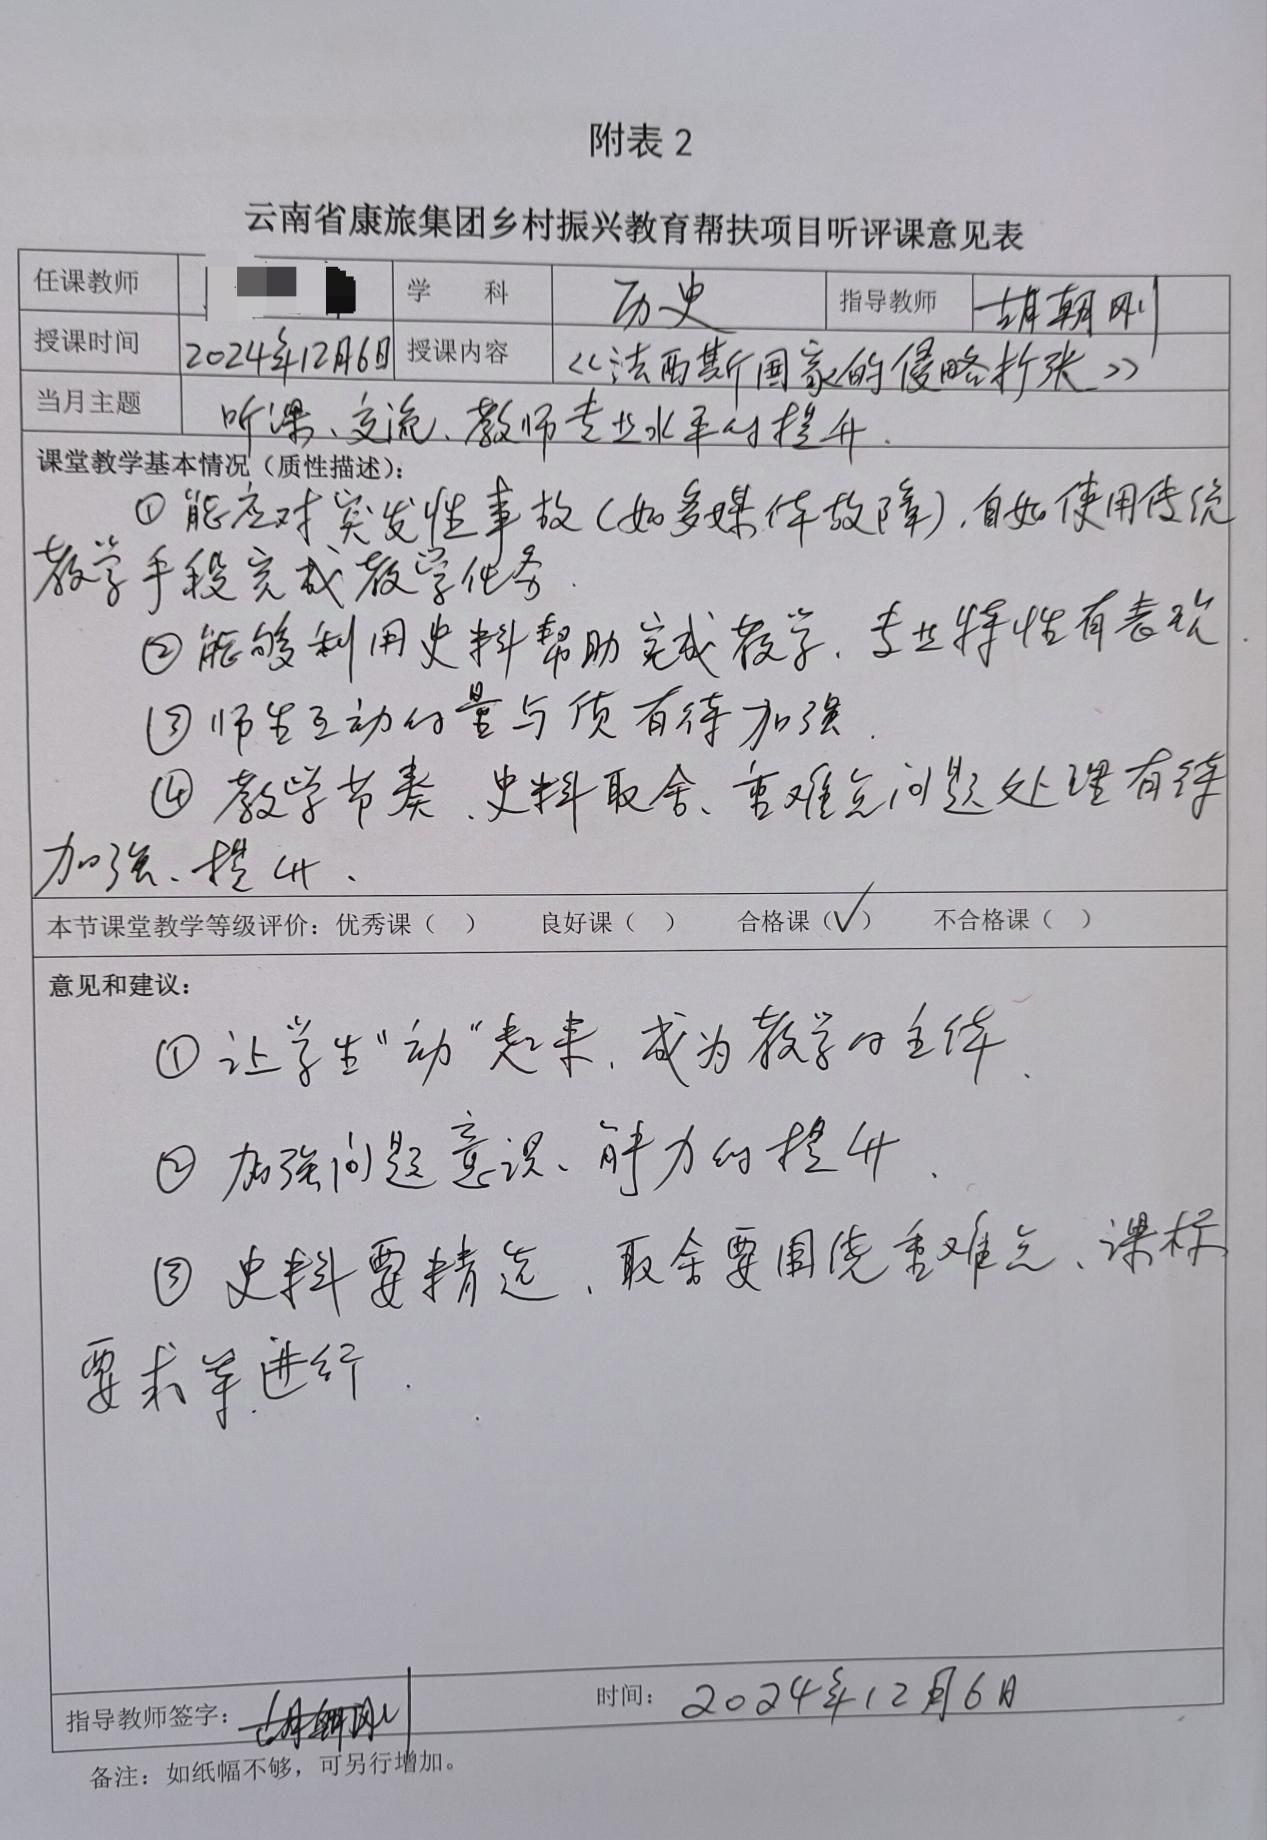 附表2
云南省康旅集团乡村振兴教育帮扶项目听评课意见表
任课教师 学 科 历史 指导教师 胡朝刚
授课时间 2024年12月6日 授课内容 《法西斯国家的侵略扩张》
当月主题 听课、交流、教师专业水平的提升.
课堂教学基本情况（质性描述）：
①能应对突发性事故(如多媒体故障),自如使用传统
教学手段完成教学任务.
②能够利用史料帮助完成教学、专业特性有表现.
③师生互动的量与质有待加强.
④教学节奏、史料取舍、重难点问题处理有待
加强、提升.
本节课堂教学等级评价：优秀课（ ） 良好课（ ） 合格课（✓） 不合格课（ ）
意见和建议：
①让学生"动"起来,成为教学的主体.
②加强问题意识、解力的提升.
③史料要精选,取舍要围绕重难点、课标
要求等进行.
指导教师签字：胡朝刚 时间：2024年12月6日
备注：如纸幅不够，可另行增加。